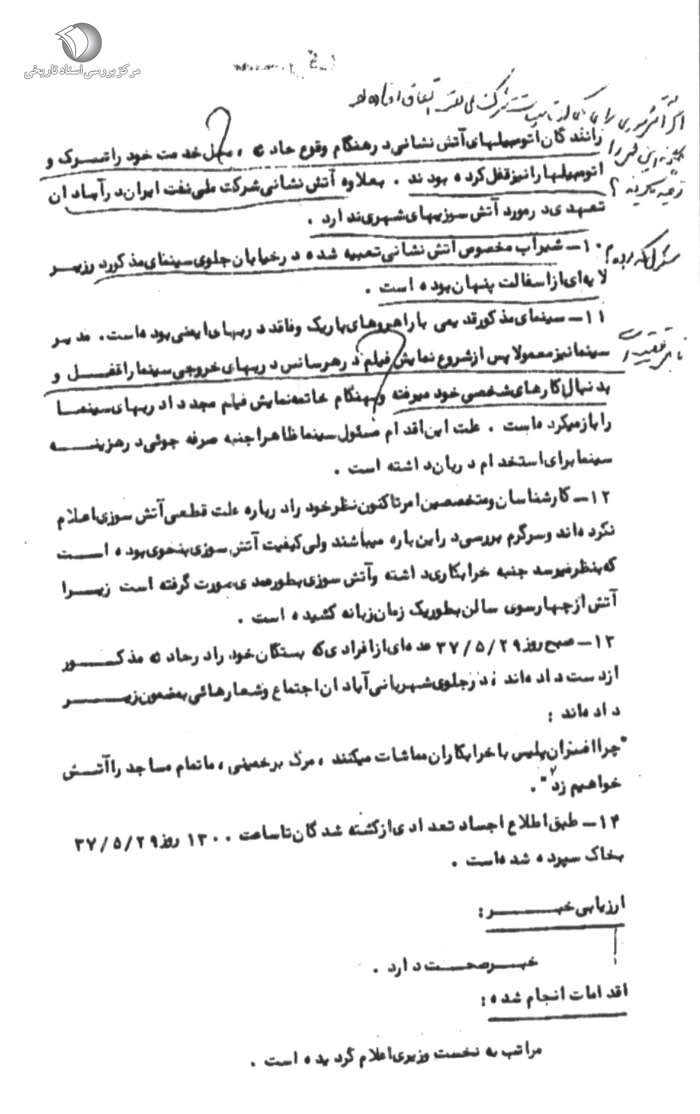 مرکز بررسی اسناد تاریخی
رانندگان اتومبیلهای آتش نشانی در هنگام وقوع حادثه ، محل خدمت خود را ترک و
اتومبیلها را نیز قفل کرده بودند . بعلاوه آتش نشانی شرکت ملی نفت ایران در آبادان
تعهدی در مورد آتش سوزیهای شهری ندارد .
۱۰ــ شیر آب مخصوص آتش نشانی تعبیه شده در خیابان جلوی سینمای مذکور در زیر
لایه ای از اسفالت پنهان بوده است .
۱۱ــ سینمای مذکور قدیمی با راهروهای باریک و فاقد دربهای ایمنی بوده است. مدیر
سینما نیز معمولا پس از شروع نمایش فیلم در هر سانس دربهای خروجی سینما را قفل و
بدنبال کارهای شخصی خود میرفته و بهنگام خاتمه نمایش فیلم مجددا دربهای سینما
را باز میکرده است . علت این اقدام مسئول سینما ظاهرا جنبه صرفه جوئی در هزینه
سینما برای استخدام دربان داشته است .
۱۲ــ کارشناسان و متخصصین امر تاکنون نظر خود را درباره علت قطعی آتش سوزی اعلام
نکرده اند و سرگرم بررسی در این باره میباشند ولی کیفیت آتش سوزی بنحوی بوده است
که بنظر میرسد جنبه خرابکاری داشته و آتش سوزی بطور عمدی صورت گرفته است زیرا
آتش از چهار سوی سالن بطور یک زمان زبانه کشیده است .
۱۳ــ صبح روز ۳۷/۵/۲۹ عده ای از افرادی که بستگان خود را در حادثه مذکور
از دست داده اند ، در جلوی شهربانی آبادان اجتماع و شعارهائی بمضمون زیر
داده اند :
"چرا افسران پلیس با خرابکاران مماشات میکنند ، مرگ بر خمینی ، ما تمام مساجد را آتش
خواهیم زد" .
۱۴ــ طبق اطلاع اجساد تعدادی از کشته شدگان تا ساعت ۱۳۰۰ روز ۳۷/۵/۲۹
بخاک سپرده شده است .
ارزیابی خبر :
خبر صحت دارد .
اقدامات انجام شده :
مراتب به نخست وزیری اعلام گردیده است .